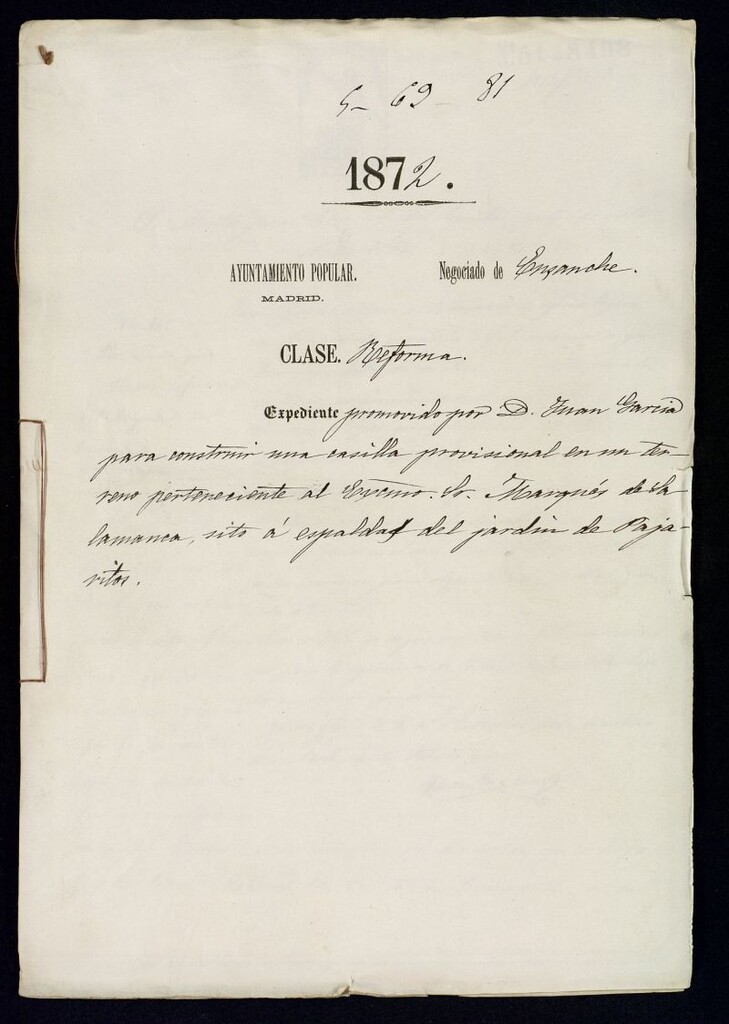 5- 69- 81
1872.
AYUNTAMIENTO POPULAR. Negociado de Ensanche.
MADRID.
CLASE. Reforma.
Expediente promovido por D. Juan Garcia
para construir una casilla provisional en un ter-
reno perteneciente al Excmo. Sr. Marqués de Sa
lamanca, sito á espaldas del jardin de Paja-
ritos.